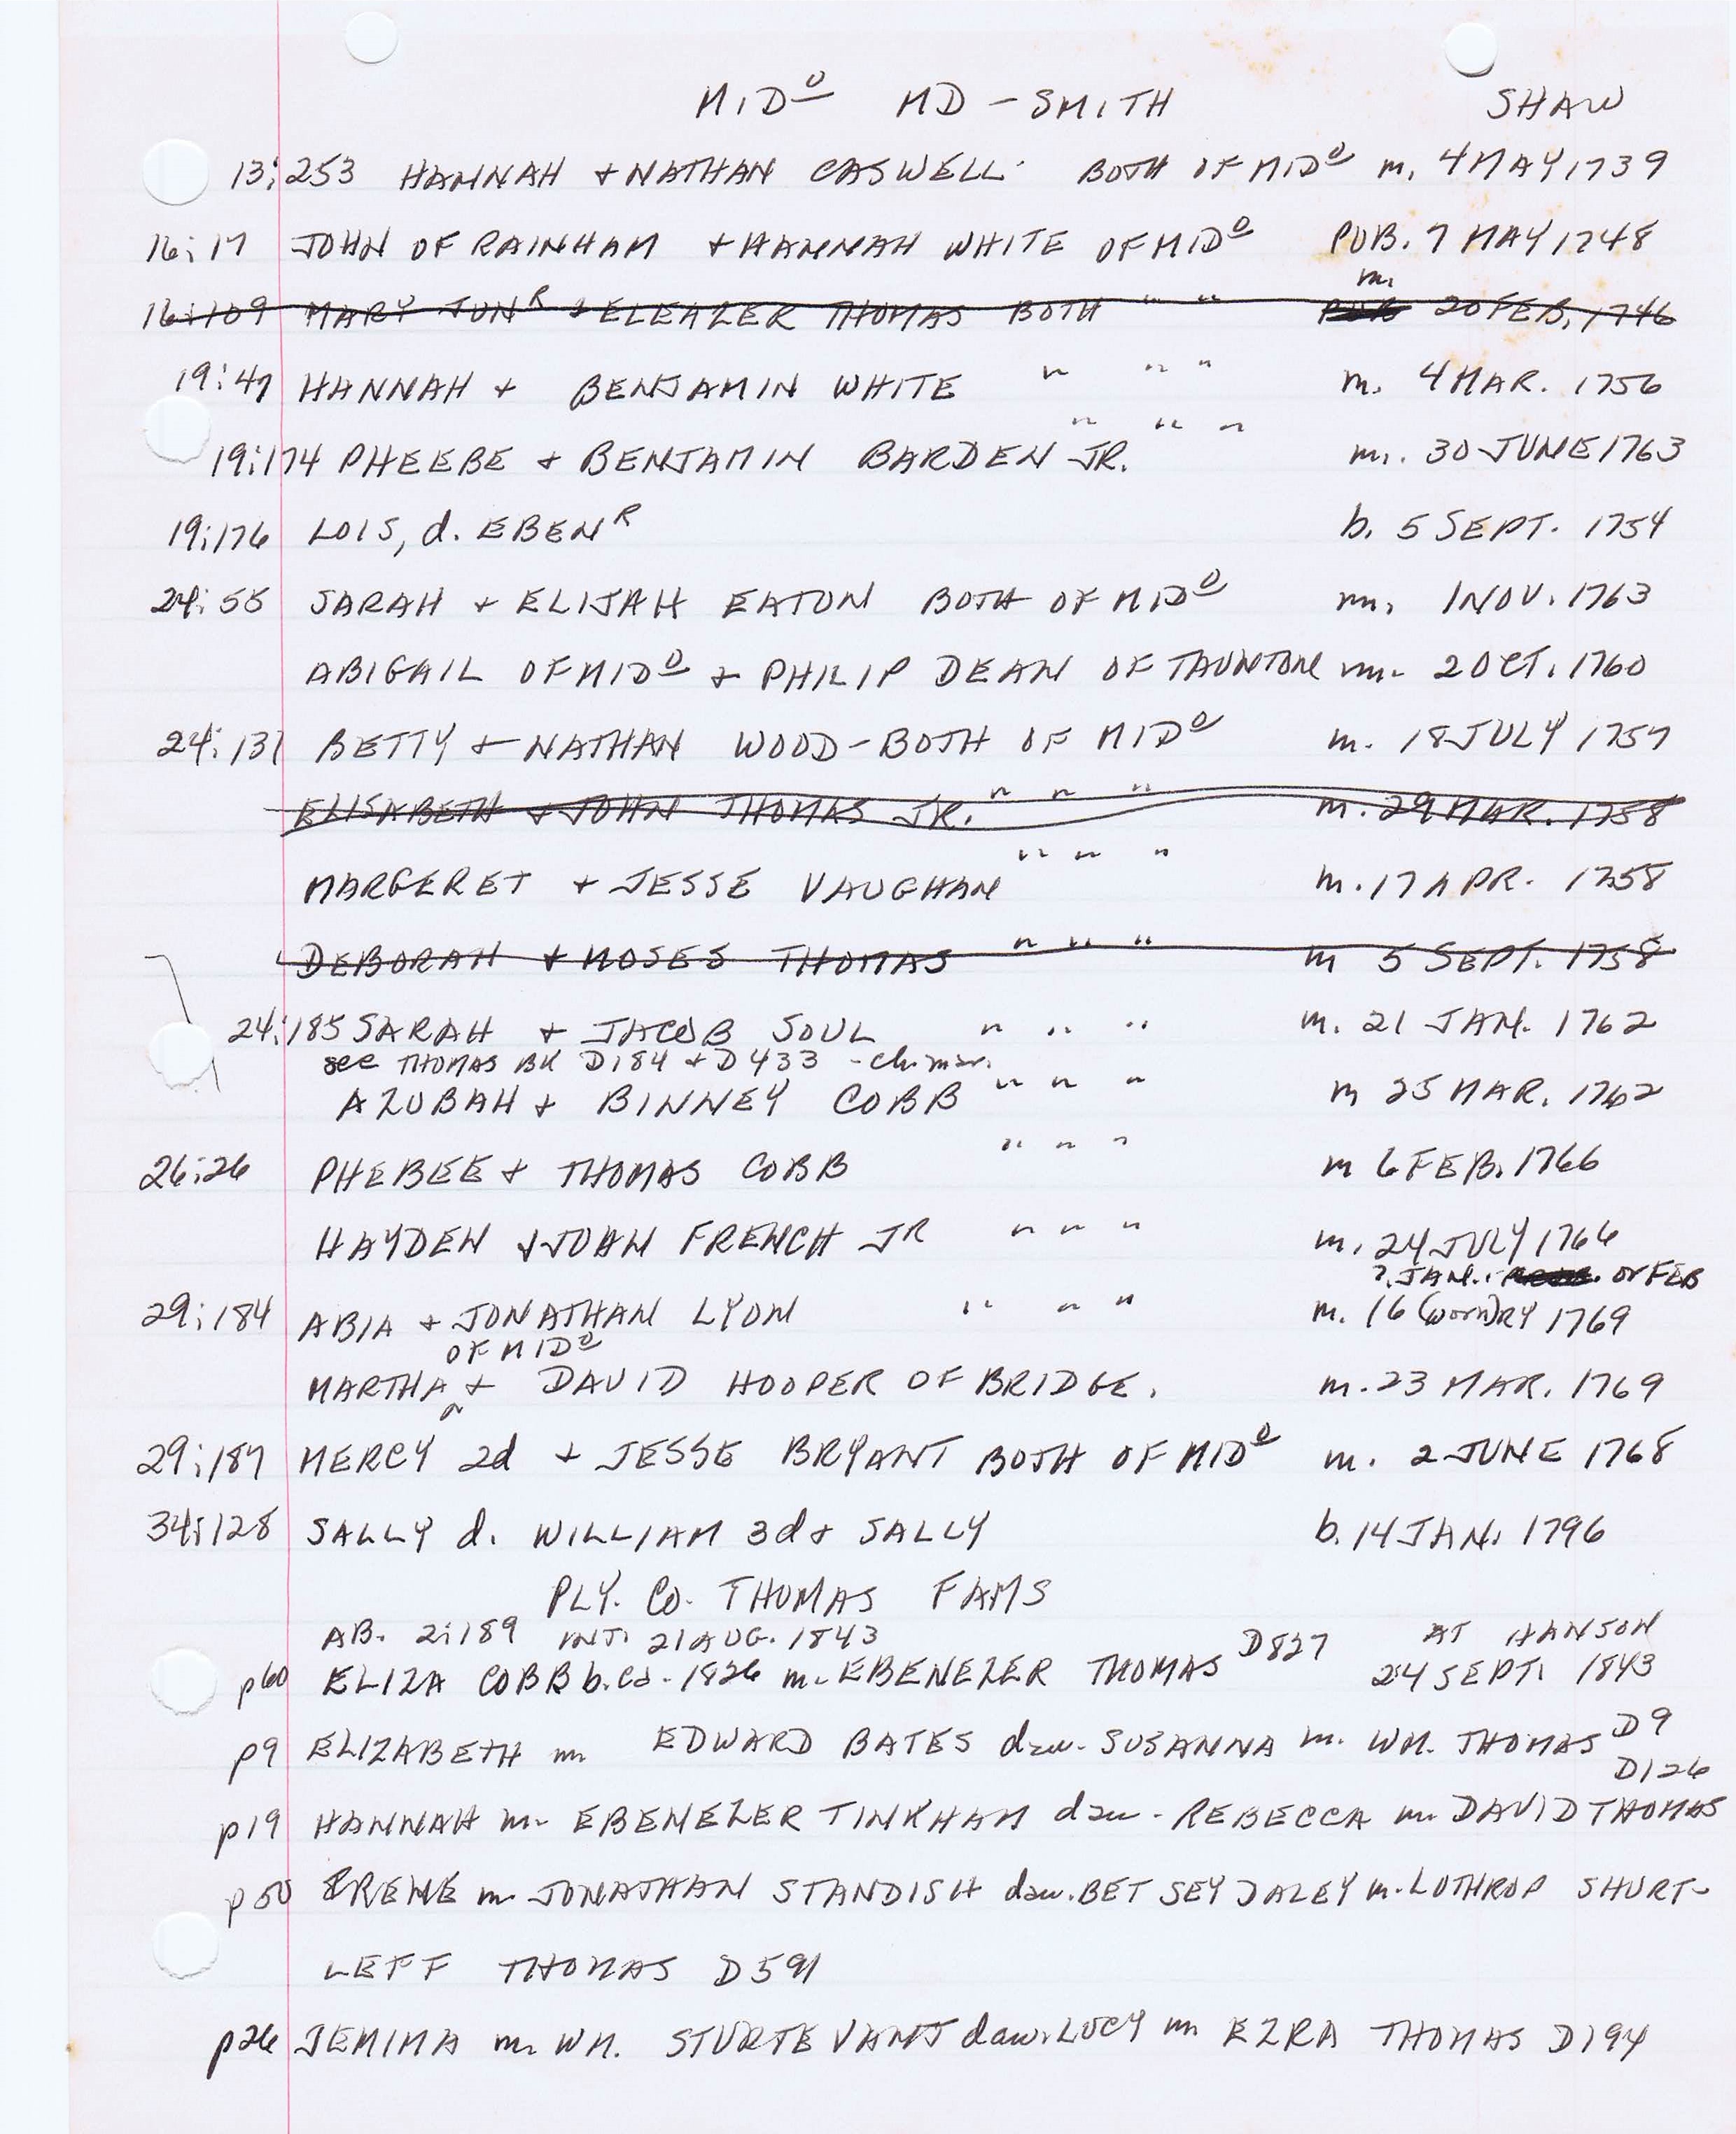 MIDº MD - SMITH SHAW
13:253 HANNAH + NATHAN CASWELL BOTH OF MIDº m. 4 MAY 1739
16:17 JOHN OF RAINHAM + HANNAH WHITE OF MIDº PUB. 7 MAY 1748
m.
16:109 MARY JUNR + ELEAZER THOMAS BOTH " " 20 FEB. 1746
19:47 HANNAH + BENJAMIN WHITE " " " m. 4 MAR. 1756
19:174 PHEEBE + BENJAMIN BARDEN JR. " " " m. 30 JUNE 1763
19:176 LOIS, d. EBENR b. 5 SEPT. 1754
24:55 SARAH + ELIJAH EATON BOTH OF MIDº m. 1 NOV. 1763
ABIGAIL OF MIDº + PHILIP DEAN OF TAUNTON m. 2 OCT. 1760
24:131 BETTY + NATHAN WOOD - BOTH OF MIDº m. 18 JULY 1757
ELISABETH + JOHN THOMAS JR. " " " m. 29 MAR. 1758
MARGERET + JESSE VAUGHAN " " " m. 17 APR. 1758
DEBORAH + MOSES THOMAS " " " m 5 SEPT. 1758
24:185 SARAH + JACOB SOUL " " " m. 21 JAN. 1762
see THOMAS BK D184 + D433 - ch. mar.
AZUBAH + BINNEY COBB " " " m 25 MAR. 1762
26:26 PHEBEE + THOMAS COBB " " " m 6 FEB. 1766
HAYDEN + JOHN FRENCH JR " " " m. 24 JULY 1766
?. JAN. or FEB
29:184 ABIA + JONATHAN LYON " " " m. 16 (worn)RY 1769
OF MIDº
MARTHA ^ + DAVID HOOPER OF BRIDGE. m. 23 MAR. 1769
29:187 MERCY 2d + JESSE BRYANT BOTH OF MIDº m. 2 JUNE 1768
34:128 SALLY d. WILLIAM 3d + SALLY b. 14 JAN. 1796
PLY. CO. THOMAS FAMS
AB. 2:189 INT. 21 AUG. 1843 D827 AT HANSON
p60 ELIZA COBB b. Ca. 1826 m. EBENEZER THOMAS 24 SEPT. 1843
p9 ELIZABETH m EDWARD BATES dau. SUSANNA m. WM. THOMAS D9
D126
p19 HANNAH m. EBENEZER TINKHAM dau - REBECCA m. DAVID THOMAS
p50 IRENE m. JONATHAN STANDISH dau. BETSEY DALEY m. LOTHROP SHURT-
LEFF THOMAS D591
p26 JEMIMA m. WM. STURTEVANT dau. LUCY m EZRA THOMAS D194